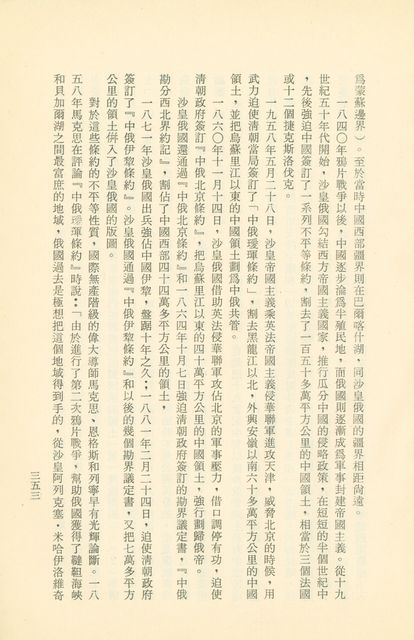 為蒙蘇邊界）。至於當時中國西部疆界則在巴爾喀什湖，同沙皇俄國的疆界相距尙遠。
一八四〇年鴉片戰爭以後，中國逐步淪爲半殖民地，而俄國則逐漸成爲軍事封建帝國主義。從十九
世紀五十年代開始，沙皇俄國勾結西方帝國主義國家，推行瓜分中國的侵略政策，在短短的半個世紀中
，先後強迫中國簽訂了一系列不平等條約，割去了一百五十多萬平方公里的中國領土，相當於三個法國
或十二個捷克斯洛伐克。
一九五八年五月二十八日，沙皇帝國主義乘英法帝國主義侵華聯軍進攻天津，威脅北京的時候，用
武力迫使清朝當局簽訂了「中俄璦琿條約」，割去黑龍江以北，外興安嶺以南六十多萬平方公里的中國
領土，並把烏蘇里江以東的中國領土劃爲中俄共管。
一八六〇年十一月十四日，沙皇俄國借助英法侵華聯軍攻佔北京的軍事壓力，借口調停有功，迫使
清朝政府簽訂『中俄北京條約』，把烏蘇里江以東的四十萬平方公里的中國領土，強行劃歸俄帝。
沙皇俄國還通過『中俄北京條約』和一八六四年十月七日強迫清朝政府簽訂的勘界議定書，『中俄
勘分西北界約記』，割佔了中國西部四十四萬多平方公里的領土，
一八七一年沙皇俄國出兵強佔中國伊犂，盤踞十年之久；一八八一年二月二十四日，迫使清朝政府
簽訂了『中俄伊犂條約』。沙皇俄國通過『中俄伊犂條約』和以後的幾個勘界議定書，又把七萬多平方
公里的領土併入了沙皇俄國的版圖。
對於這些條約的不平等性質，國際無產階級的偉大導師馬克思、恩格斯和列寧早有光輝論斷。一八
五八年馬克思在評論『中俄璦琿條約』時說：「由於進行了第二次鴉片戰爭，幫助俄國獲得了韃靼海峽
和貝加爾湖之間最富庶的地域，俄國過去是極想把這個地域得到手的，從沙皇阿列克塞・米哈伊洛維奇
三五三